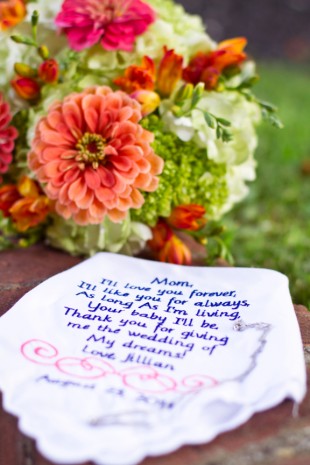 Mom,
I'll love you forever,
I'll like you for always,
As long As I'm living,
Your baby I'll be,
Thank you for giving
me the wedding of
My dreams!
Love Jillian
August